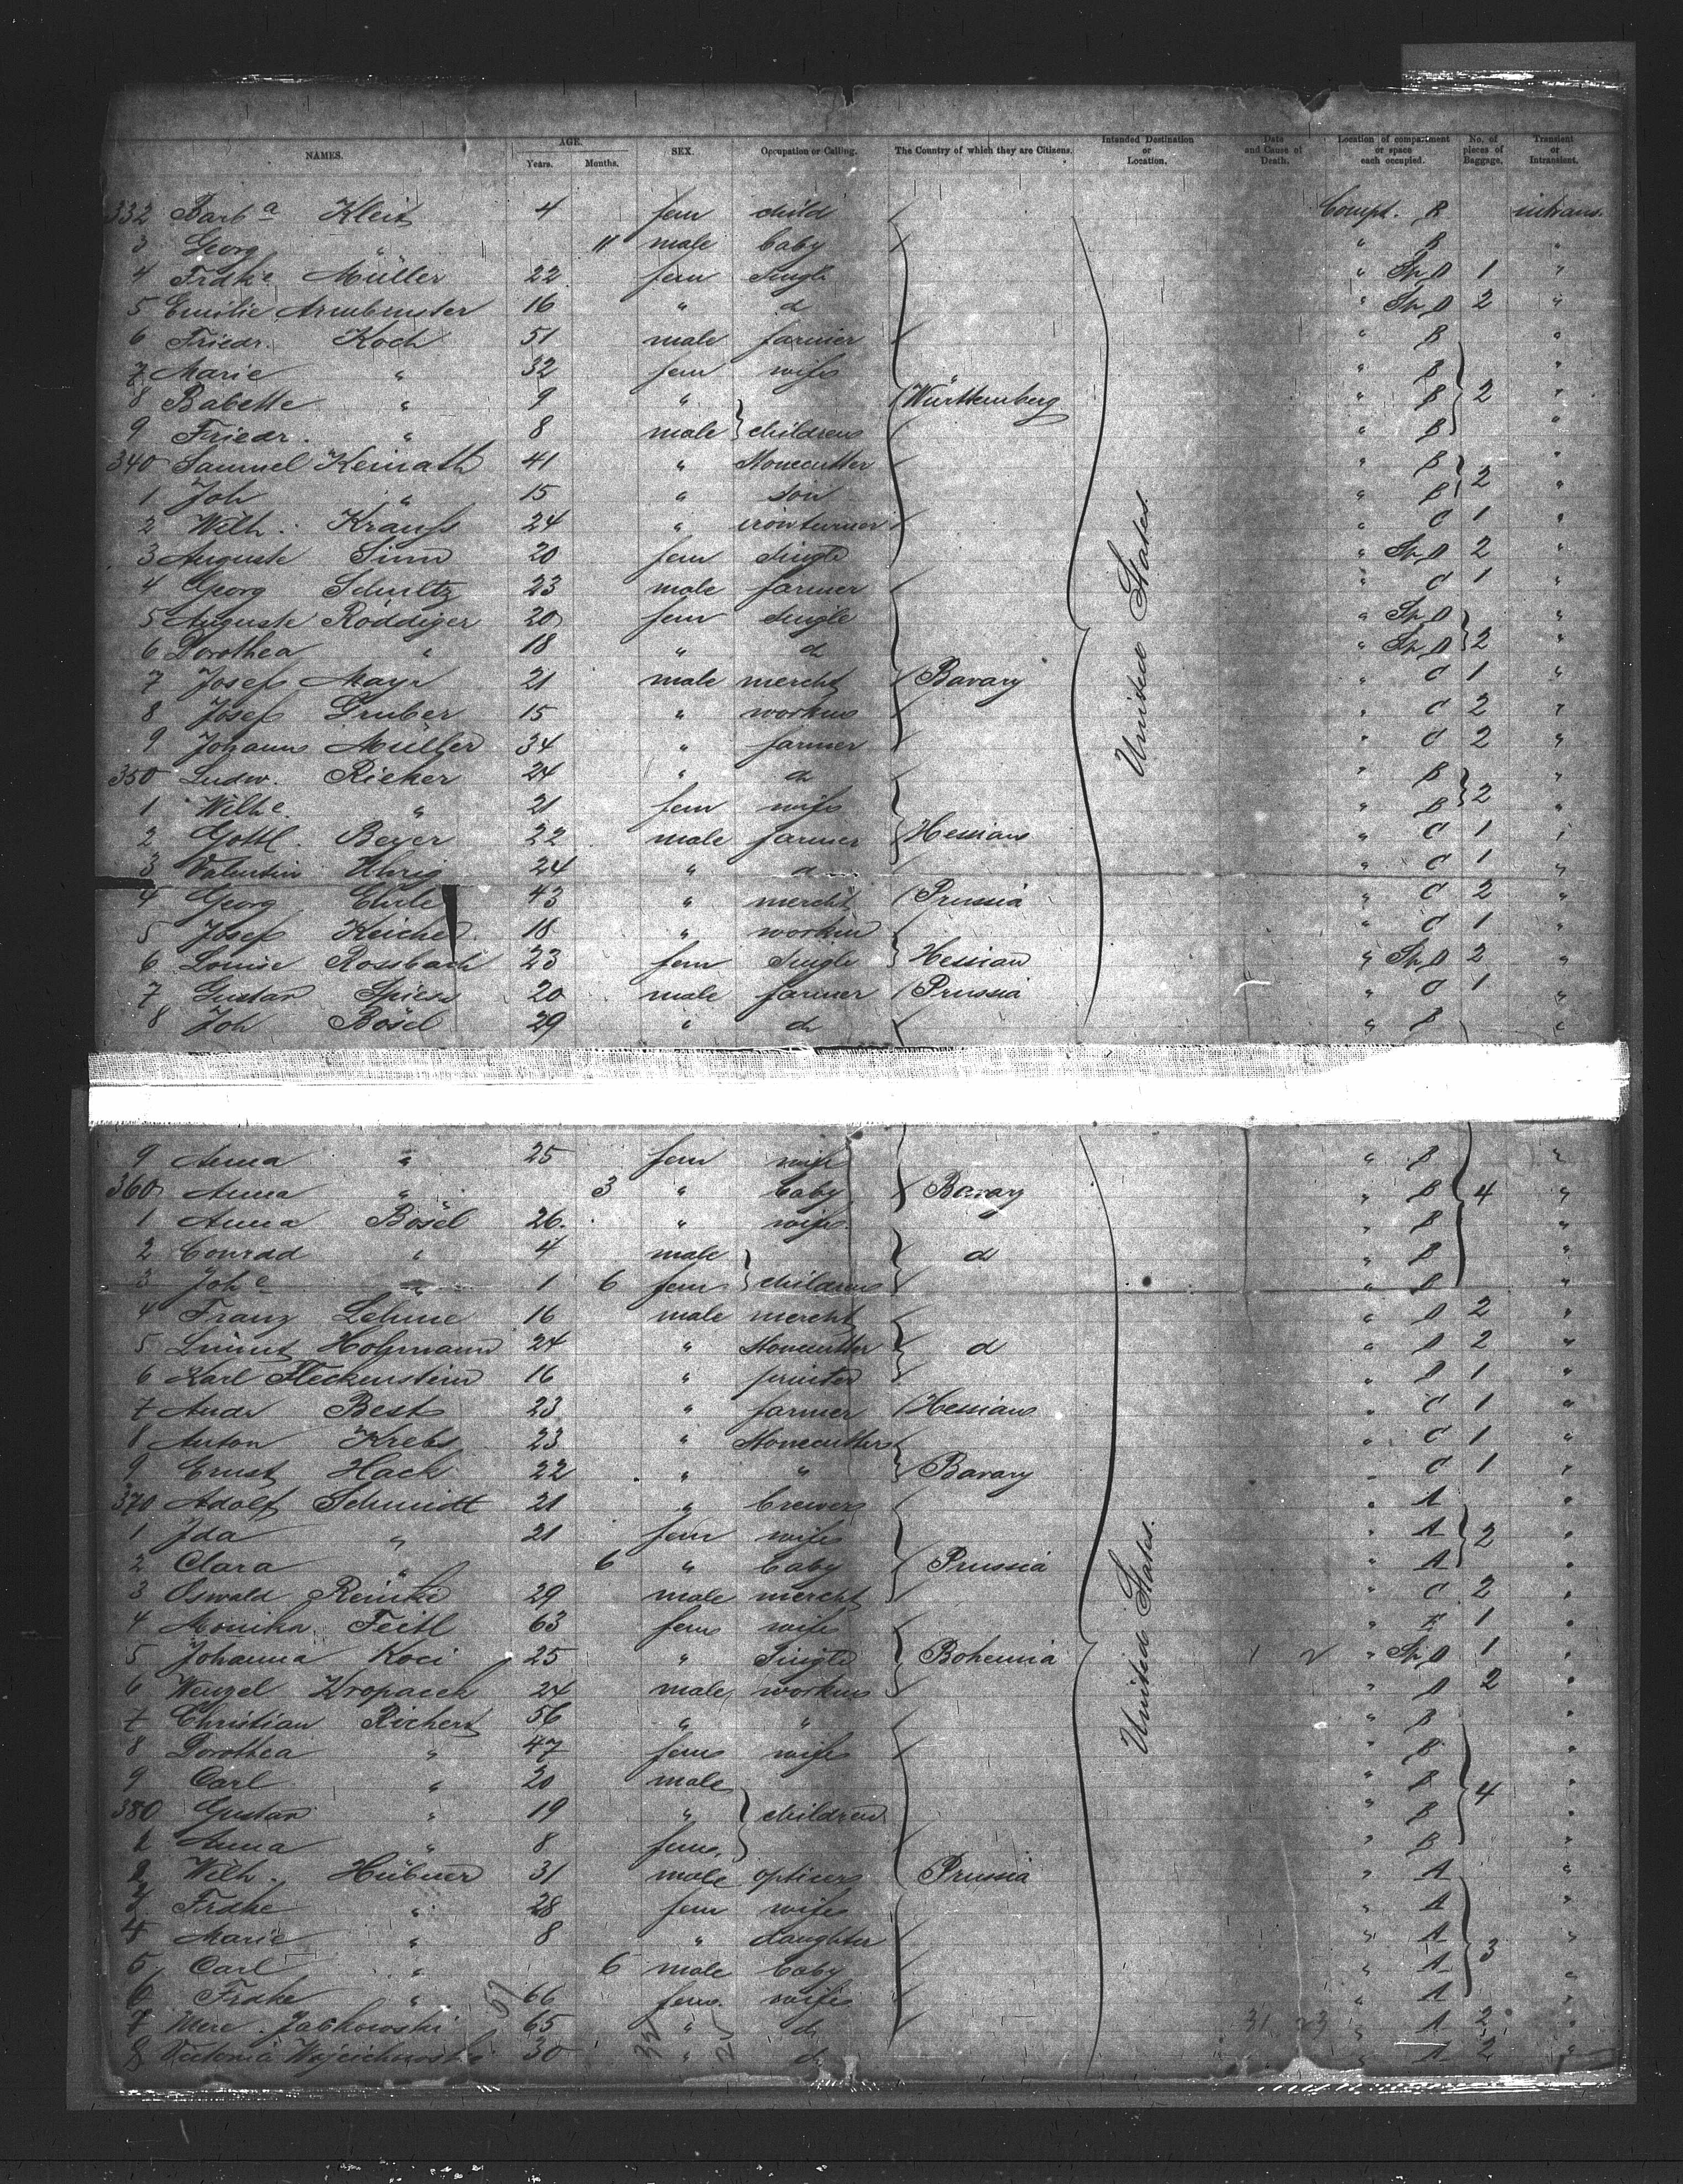 NAMES. AGE. Years. Months. SEX. Occupation or Calling. The Country of which they are Citizens. Intended Destination or Location. Date and Cause of Death. Location of compartment or space each occupied. No. of pieces of Baggage. Transient or Intransient.
332 Barb a Kleit 4 fem child Compt. B intrans.
3 Georg " 11 male baby " B "
4 Frdke Müller 22 fem Single " Sp D 1 "
5 Emilie Armbruster 16 " d " Sp D 2 "
6 Friedr. Koch 51 male farmer " B "
7 Marie " 32 fem wife " B "
8 Babette " 9 " Württemberg " B 2 "
9 Friedr. " 8 male children " B "
340 Samuel Keinath 41 " Stonecutter " B 2 "
1 Joh " 15 " son " B "
2 Wilh. Krauß 24 " ironturner " C 1 "
3 Auguste Sinn 20 fem Single " Sp D 2 "
4 Georg Schultz 23 male farmer " C 1 "
5 Auguste Röddiger 20 fem Single " Sp D "
6 Dorothea " 18 " d " Sp D 2 "
7 Josef Mayr 21 male mercht Bavary " C 1 "
8 Josef Gruber 15 " workm " C 2 "
9 Johann Müller 34 " farmer " C 2 "
350 Ludw. Rieker 24 " d " B "
1 Wilhe. " 21 fem wife " B 2 "
2 Gottl. Beyer 22 male farmer Hessian " C 1 "
3 Valentin Uhrig 24 " d " C 1 "
4 Georg 43 " mercht Prussia " C 2 "
5 Josef Keicher 18 " workm " C 1 "
6 Louise Rossbach 23 fem Single Hessian " Sp D 2 "
7 Gustav Spiess 20 male farmer Prussia " C 1 "
8 Joh Bösel 29 " d " B "
United States.
9 Anna " 25 fem wife " B "
360 Anna " 3 " baby Bavary " B 4 "
1 Anna Bösel 26 " wife " B "
2 Conrad " 4 male d " B "
3 Johe " 1 6 fem children " B "
4 Franz Lehme 16 male mercht " D 2 "
5 Hofmann 24 " Stonecutter d " D 2 "
6 Karl Fleckenstein 16 " printer " D 1 "
7 Andr Best 23 " farmer Hessian " C 1 "
8 Anton Krebs 23 " Stonecutters " C 1 "
9 Ernst Hack 22 " " Bavary " C 1 "
370 Adolf Schmidt 21 " brewer " A "
1 Ida " 21 fem wife " A 2 "
2 Clara " 6 " baby Prussia " A "
3 Oswald Reinke 29 male mercht " C 2 "
4 Monika Feitl 63 fem wife " 1 "
5 Johanna Koci 25 " Single Bohemia " Sp D 1 "
6 Wenzel Kropacek 24 male workm " D 2 "
7 Christian Richert 56 " " " B "
8 Dorothea " 47 fem wife " B "
9 Carl " 20 male " B 4 "
380 Gustav " 19 " children " B "
1 Anna " 8 fem. " B "
2 Wilh. Hübner 31 male opticer Prussia " A "
3 Frdke " 28 fem wife " A "
4 Marie " 8 " daughter " A "
5 Carl " 6 male baby " A 3 "
6 Frdke " 66 fem. wife " A "
7 Jackowski 65 " d 31 23 " A 2 "
8 Victoria Wojcichowski 30 " d " A 2 "
United States.